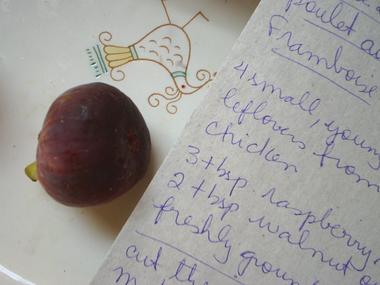 poulet a
Framboise
4 small, youn
leftovers from
chicken
3 tbsp raspberry
2 tbsp walnut o
freshly groun
cut the